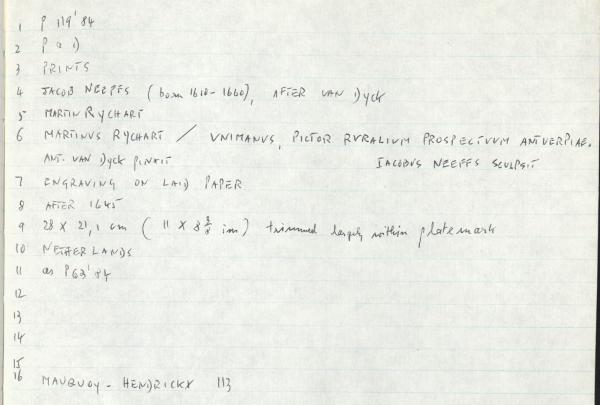 1 P 119'84
2 P a 1)
3 PRINTS
4 JACOB NEEFFS (born 1610-1660), AFTER VAN DYCK
5 MARTIN RYCHART
6 MARTINUS RYCHART / VNIMANUS, PICTOR RVRALIVM PROSPECTVVM ANTVERPIAE.
ANT. VAN DYCK pinxit IACOBUS NEEFFS SCULPSIT
7 ENGRAVING ON LAID PAPER
8 AFTER 1645
9 28 X 21,1 cm ( 11 X 8 3/8 in) trimmed largely within platemark
10 NETHERLANDS
11 as P63'84
12
13
14
15
16 MAUQUOY-HENDRICKX 113